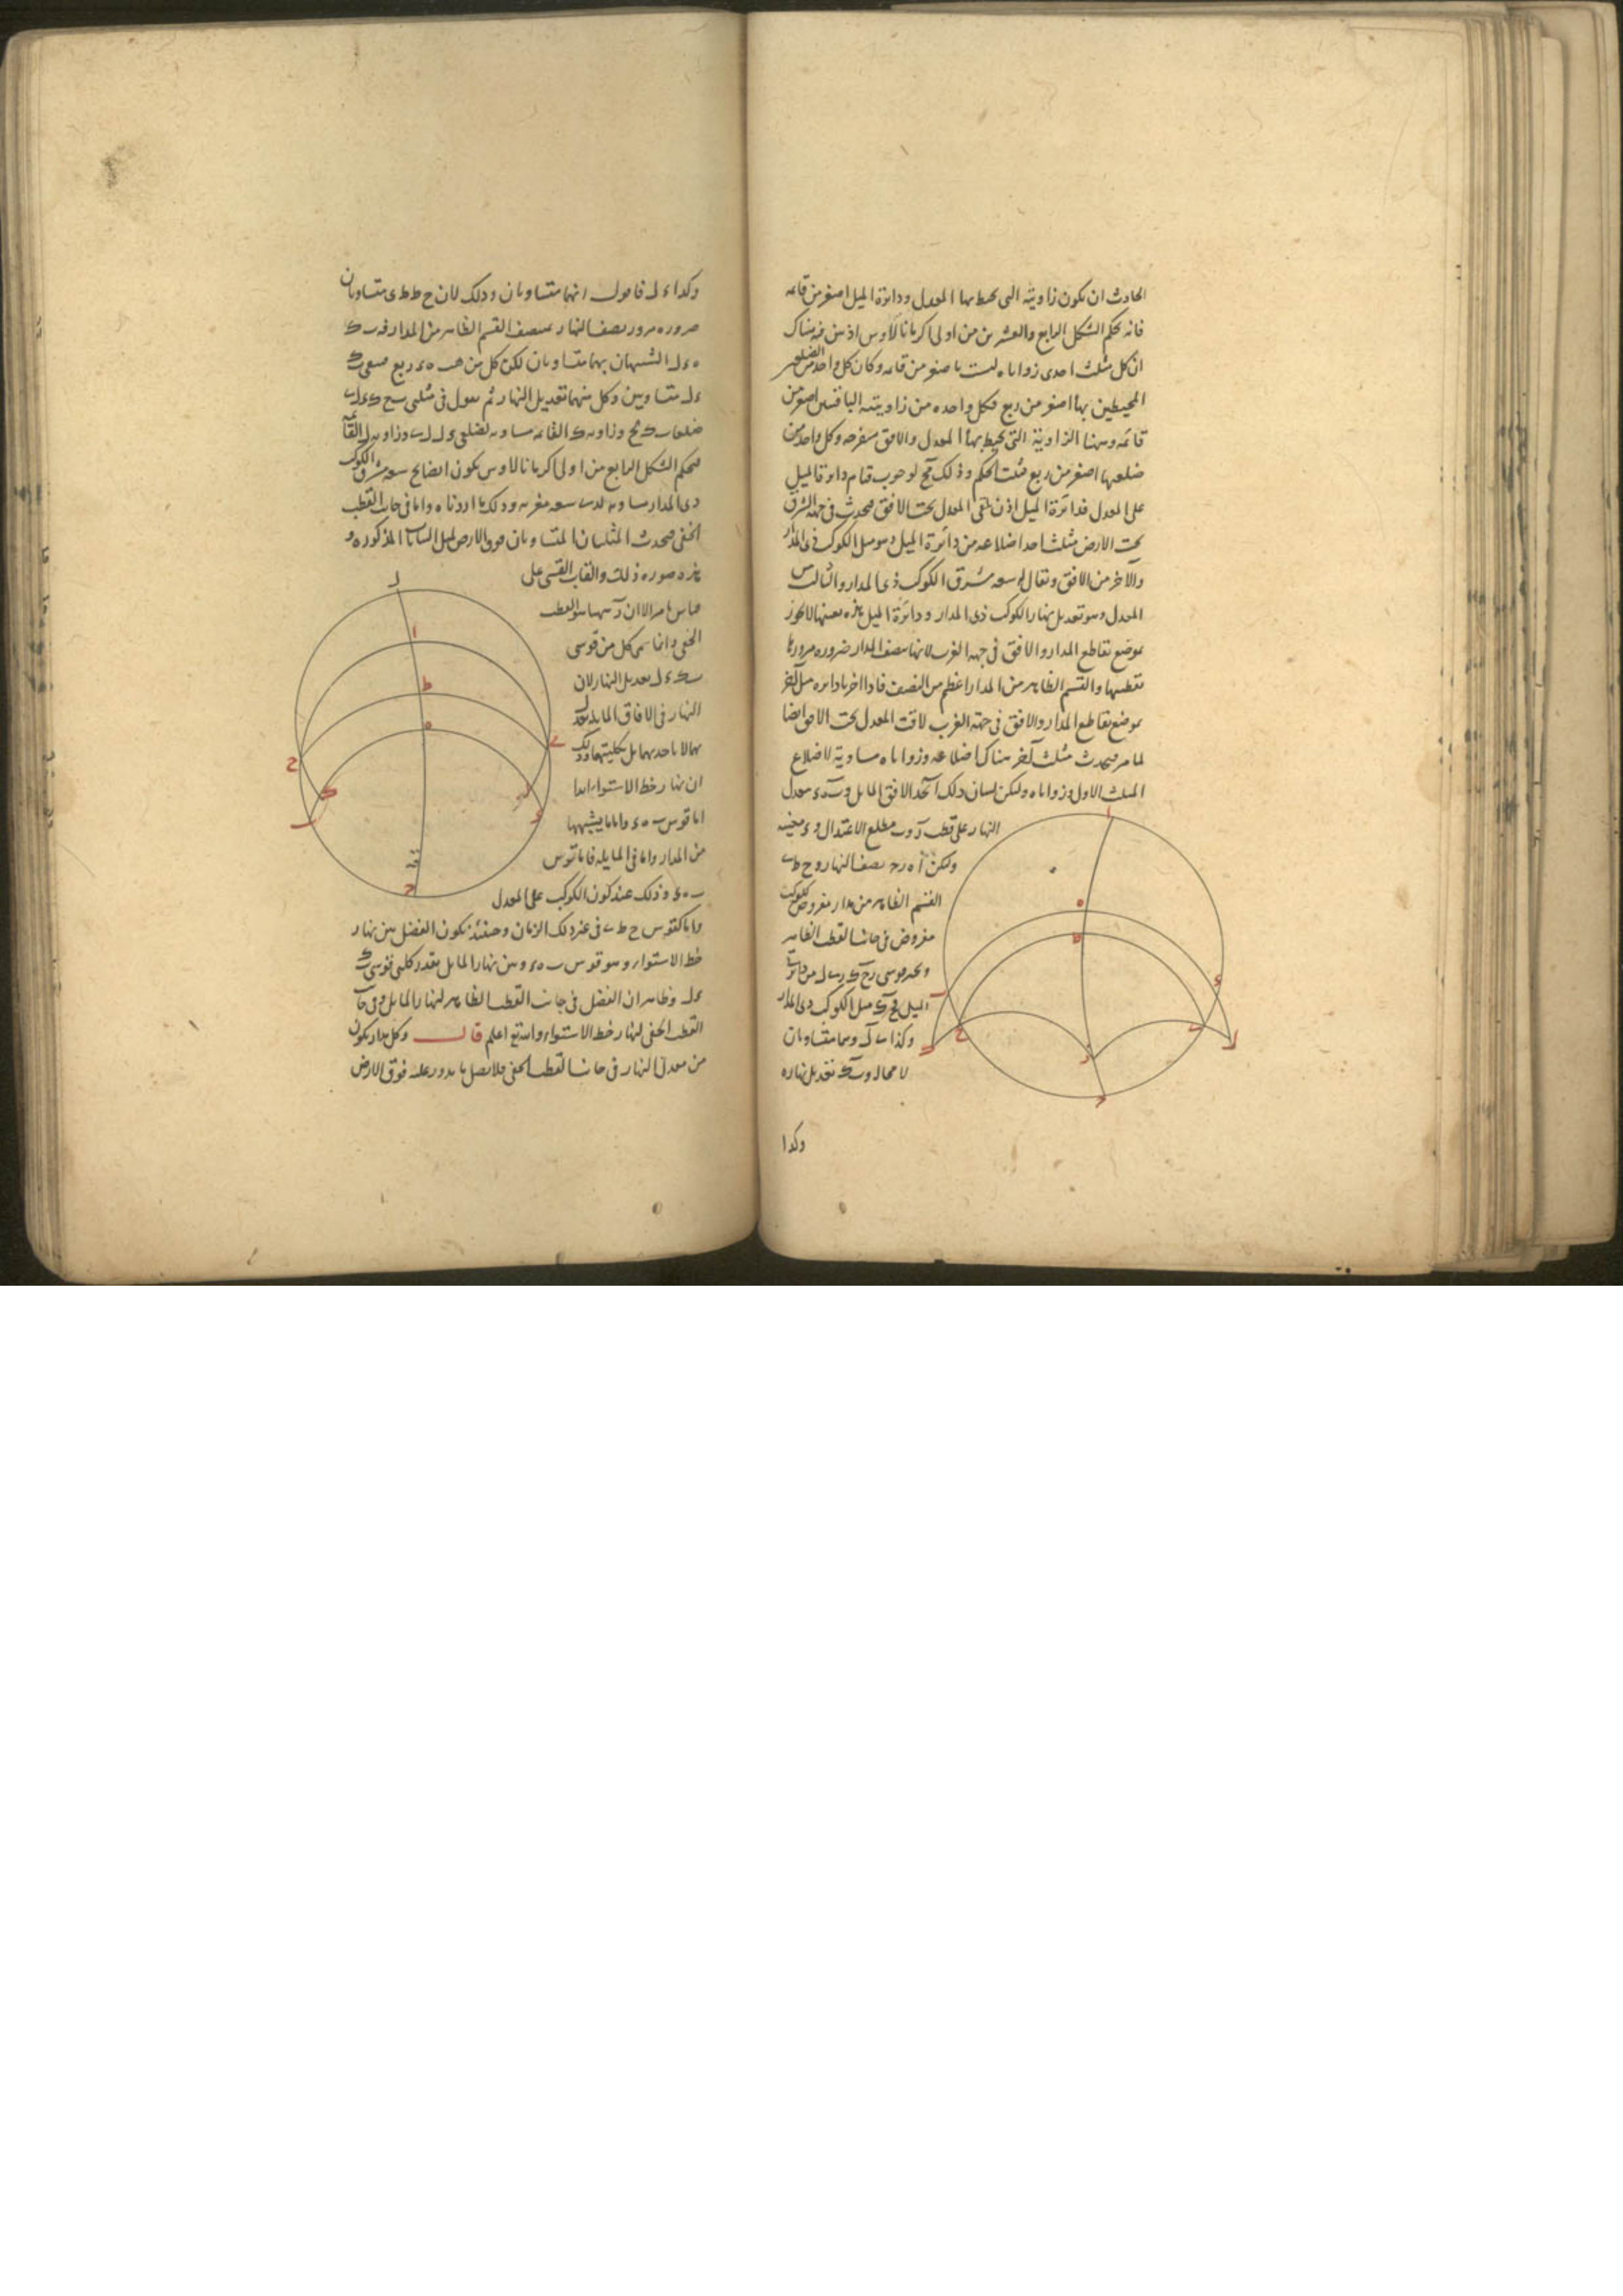 الحادث ان يكون زاويته التى يحيط بها المعدل ودائرة الميل اصغر من قائمه
فانه بحكم الشكل الرابع والعشرين من اولى اكر مانالاوس اذ بين فيه هناك
ان كل مثلث احدى زواياه ليست باصغر من قائمه وكان كل واحد من الضلعين
المحيطين بها اصغر من ربع فكل واحده من زاويتيه الباقيتين اصغر من
قائمه وههنا الزاوية التى يحيط بها المعدل والافق منفرجه وكل واحد من
ضلعيها اصغر من ربع فثبت الحكم وذلك لوجوب قيام دائرة الميل
على المعدل فدائرة الميل اذن تلقى المعدل تحت الافق فيحدث فى جهة الشرق
تحت الارض مثلث احد اضلاعه من دائرة الميل وهو ميل الكوكب ذى المدار
والآخر من الافق ويقال له سعه مشرق الكوكب ذى المدار والثالث من
المعدل وهو تعديل نهار الكوكب ذى المدار ودائرة الميل هذه بعينها لا تجوز
بموضع تقاطع المدار والافق فى جهه الغرب لانها تنصف المدار ضروره مرورها
بقطبيها والقسم الظاهر من المدار اعظم من النصف فاذا اخرنا دايره ميل آخر
بموضع تقاطع المدار والافق فى جهة الغرب لاقت المعدل تحت الافق ايضا
لما مر فيحدث مثلث آخر هناك اضلاعه وزواياه مساوية لاضلاع
المثلث الاول وزواياه وليكن لبيان ذلك ا ب ح د الافق المايل و ب ه د معدل
النهار على قطب ر و ب مطلع الاعتدال و د مغيبه
وليكن ا ه ر ح نصف النهار و ح ط ى
القسم الظاهر من مدار مفروض لكوكب
مفروض فى جانب القطب الظاهر
ونخرج قوسى ر ح ك ر ى ل من دائرتى
الميل فح ك ميل الكوكب ذى المدار
وكذا ى ل وهما متساويان
لا محاله و ب ك تعديل نهاره
وكذا
وكذا د ل فاقول انهما متساويان وذلك لان ح ط ط ى متساويان
ضروره مرور نصف النهار بمنتصف القسم الظاهر من المدار فه ب ك
ه د ل الشبيهان بهما متساويان لكن كل من ه ب ه د ربع فيبقى ب ك
د ل متساويين وكل منهما تعديل النهار ثم نقول فى مثلثى ب ح ك د ل ى
ضلعا ب ك ك ح وزاويه ك القائمه مساويه لضلعى د ل ل ى وزاويه ل القائمه
فبحكم الشكل الرابع من اولى اكر مانالاوس يكون ايضا ب ح سعه مشرق الكوكب
ذى المدار مساويه لدى سعه مغربه وذلك ما اردناه واما فى جانب القطب
الخفى فيحدث المثلثان المتساويان فوق الارض لمثل البيانات المذكوره و
هذه صورة ذلك والقاب القسى على
قياس ما مر الا ان ر ههنا هو القطب
الخفى وانما سمى كل من قوسى
ب ك د ل تعديل النهار لان
النهار فى الافاق المايله يعدل
بهما لا باحديهما بل بكليتهما وذلك
ان نهار خط الاستواء ابدا
اما قوس ب ه د واما ما يشبهها
من المدار واما فى المايله فاما قوس
ب ه د وذلك عند كون الكوكب على المعدل
واما كقوس ح ط ى فى غير ذلك الزمان وحينئذ يكون الفضل بين نهار
خط الاستواء وهو قوس ب ه د وبين نهار المايل بقدر كلتى قوسى ب ك
د ل وظاهر ان الفضل فى جانب القطب الظاهر لنهار المايل وفى جانب
القطب الخفى لنهار خط الاستواء والله تع اعلم قال وكل مدار يكون
من معدل النهار فى جانب القطب الخفى فلا يصل ما يدور عليه فوق الارض